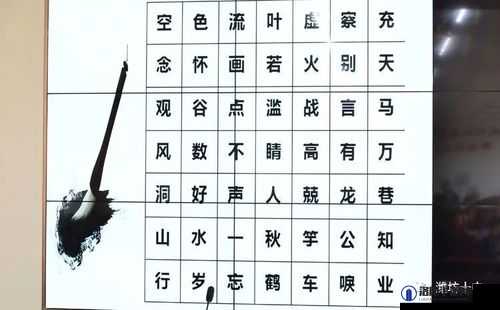 空 色 流 叶 虚 察 充
念 怀 画 若 火 别 天
观 谷 点 滥 战 言 马
风 数 不 晴 高 有 万
洞 好 声 人 兢 龙 巷
山 水 一 秋 竽 公 知
行 岁 忘 鹤 车 唳 业
潍坊